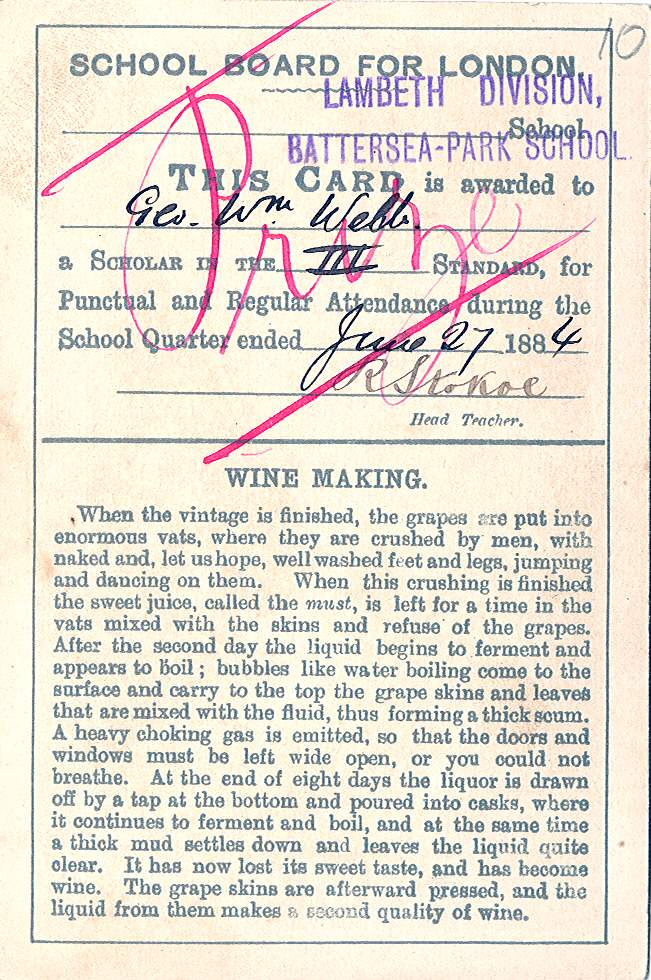 10
SCHOOL BOARD FOR LONDON.
LAMBETH DIVISION,
School
BATTERSEA-PARK SCHOOL.
THIS CARD is awarded to
Geo. Wm Webb.
a SCHOLAR IN THE III STANDARD, for
Punctual and Regular Attendance during the
School Quarter ended June 27 1884
R Stokoe
Head Teacher.
Prize
WINE MAKING.
When the vintage is finished, the grapes are put into
enormous vats, where they are crushed by men, with
naked and, let us hope, well washed feet and legs, jumping
and dancing on them. When this crushing is finished
the sweet juice, called the must, is left for a time in the
vats mixed with the skins and refuse of the grapes.
After the second day the liquid begins to ferment and
appears to boil; bubbles like water boiling come to the
surface and carry to the top the grape skins and leaves
that are mixed with the fluid, thus forming a thick scum.
A heavy choking gas is emitted, so that the doors and
windows must be left wide open, or you could not
breathe. At the end of eight days the liquor is drawn
off by a tap at the bottom and poured into casks, where
it continues to ferment and boil, and at the same time
a thick mud settles down and leaves the liquid quite
clear. It has now lost its sweet taste, and has become
wine. The grape skins are afterward pressed, and the
liquid from them makes a second quality of wine.